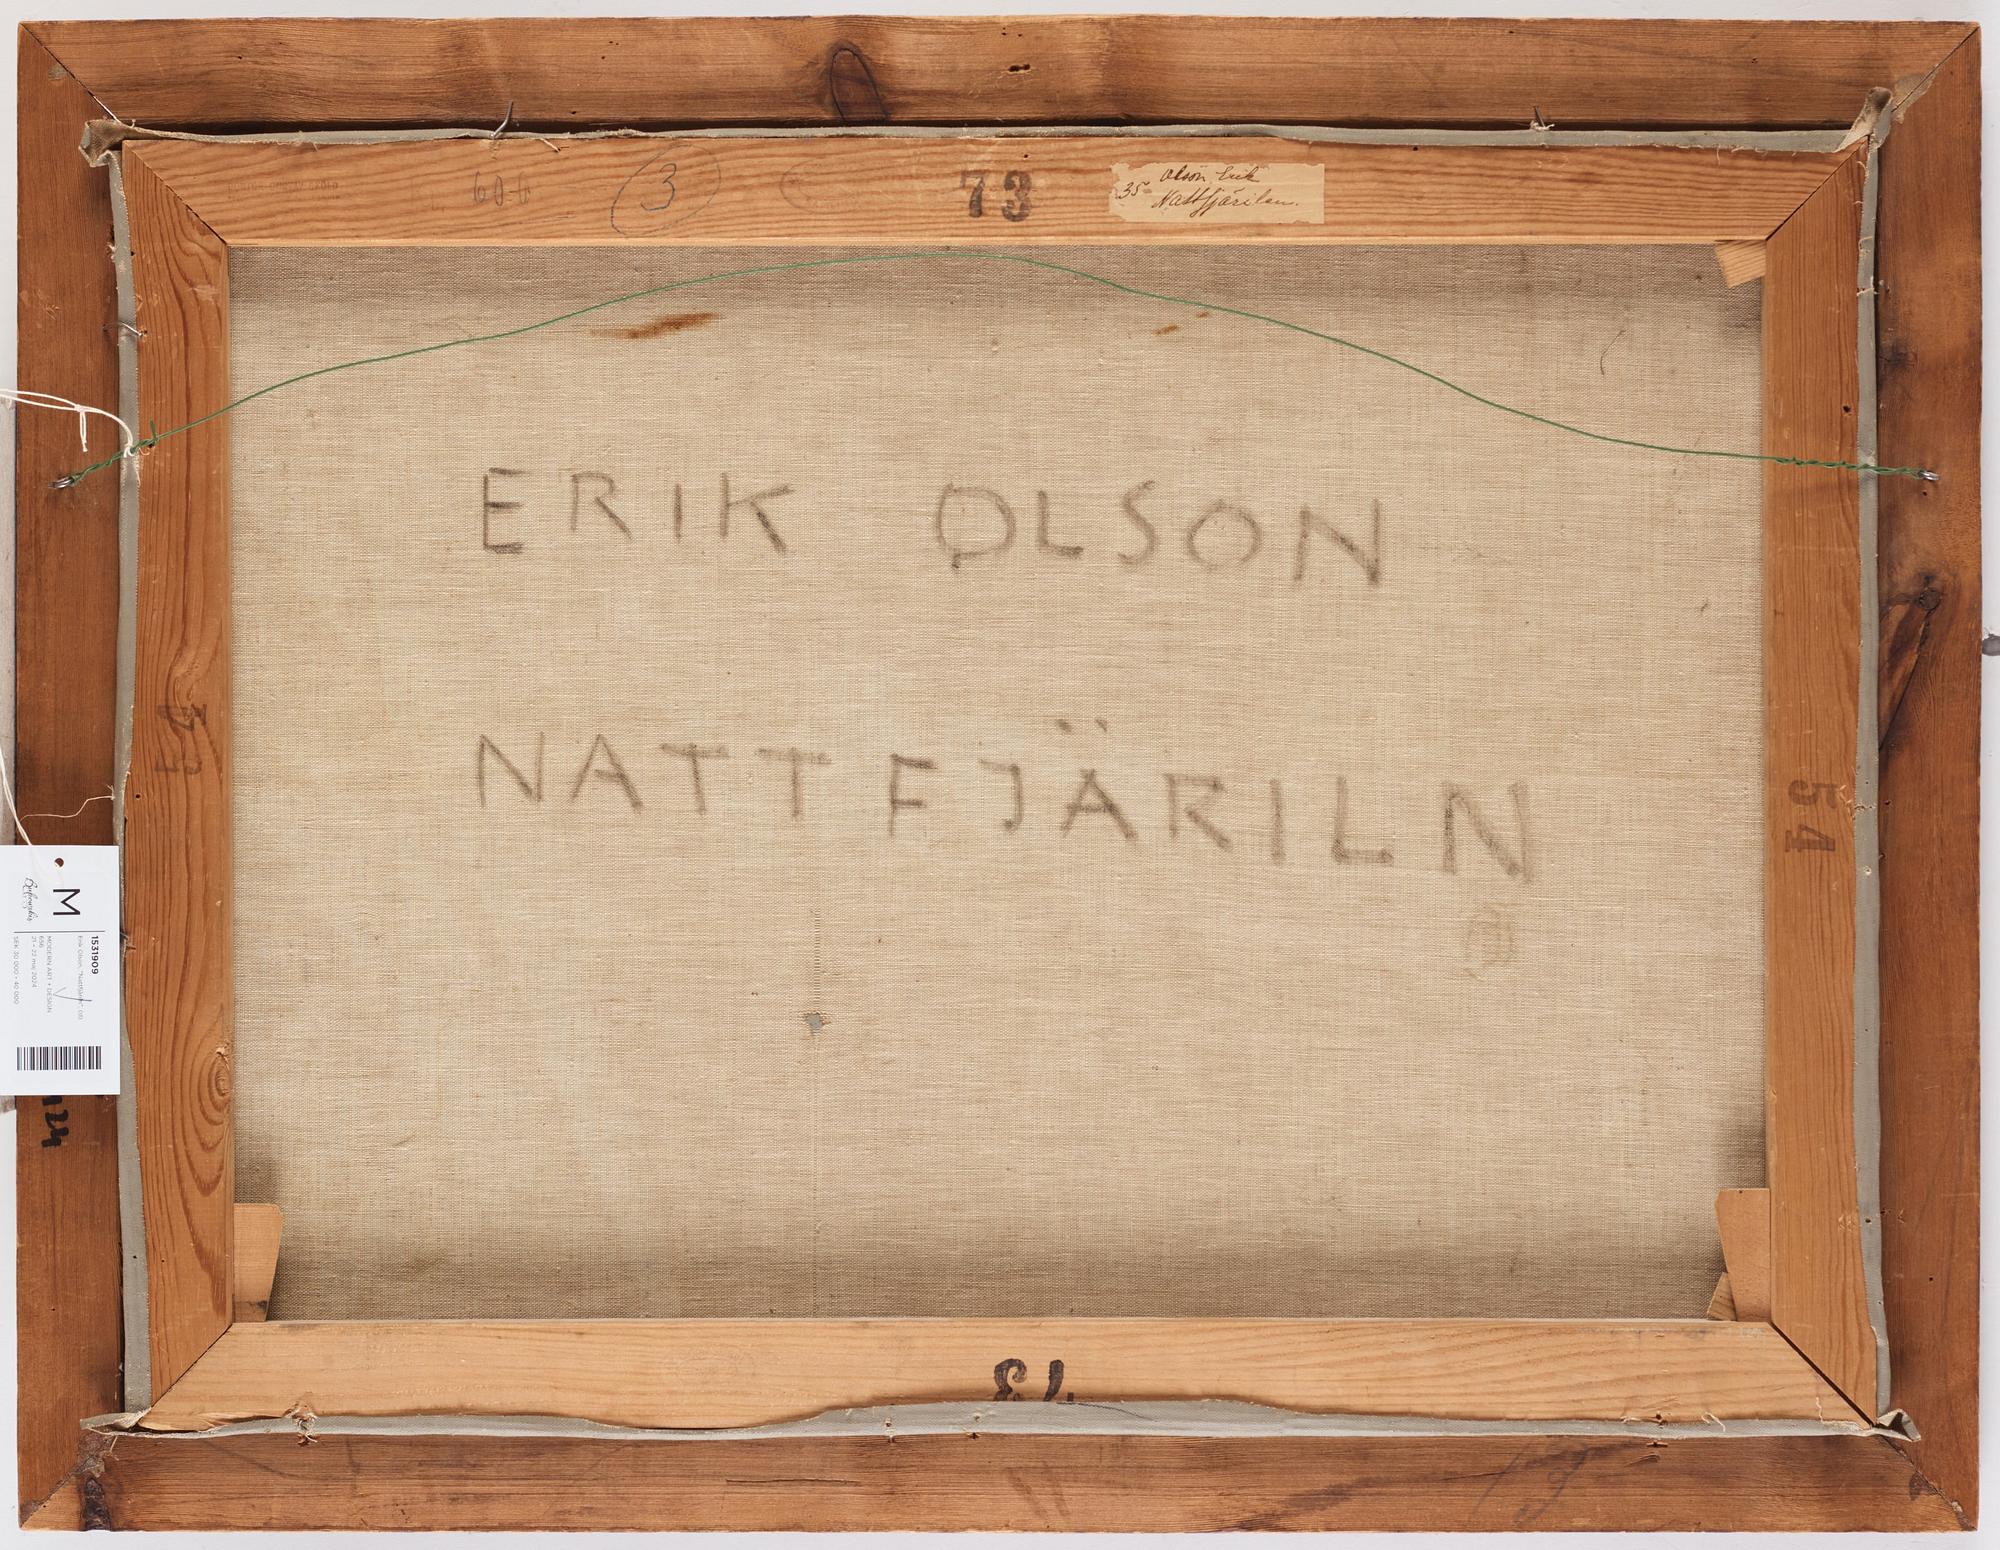 60-0
3
73
35 Olson Erik
Nattfjärilen.
ERIK OLSON
NATTFJÄRILN
54
54
73
M
Bukowskis
1531909
Erik Olson, "Nattfjäriln"
MODERN ART + DESIGN
656
21 - 22 maj 2024
SEK 30 000 - 40 000